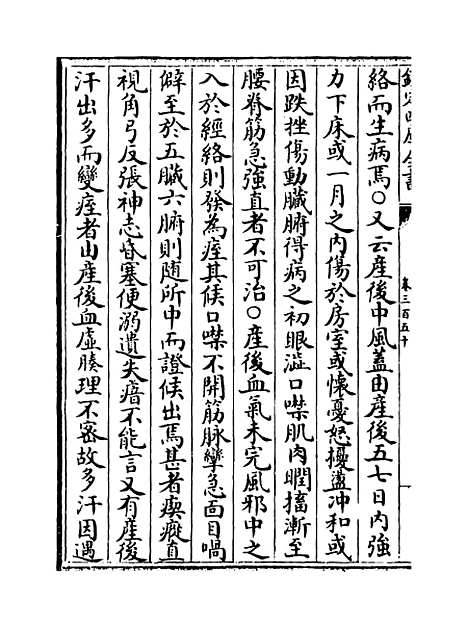 欽定四庫全書
卷三百五十
絡而生病焉○又云産後中風蓋由産後五七日內強
力下床或一月之內傷於房室或懷憂怒擾盪冲和或
因跌挫傷動臟腑得病之初眼澁口噤肌肉瞤搐漸至
腰脊筋急強直者不可治○産後血氣未完風邪中之
入於經絡則發為痙其候口噤不開筋脉攣急面目喎
僻至於五臟六腑則随所中而證候出焉甚者瘈瘲直
視角弓反張神志昏塞便溺遺失瘖不能言又有産後
汗出多而變痙者由産後血虛腠理不宻故多汗因遇